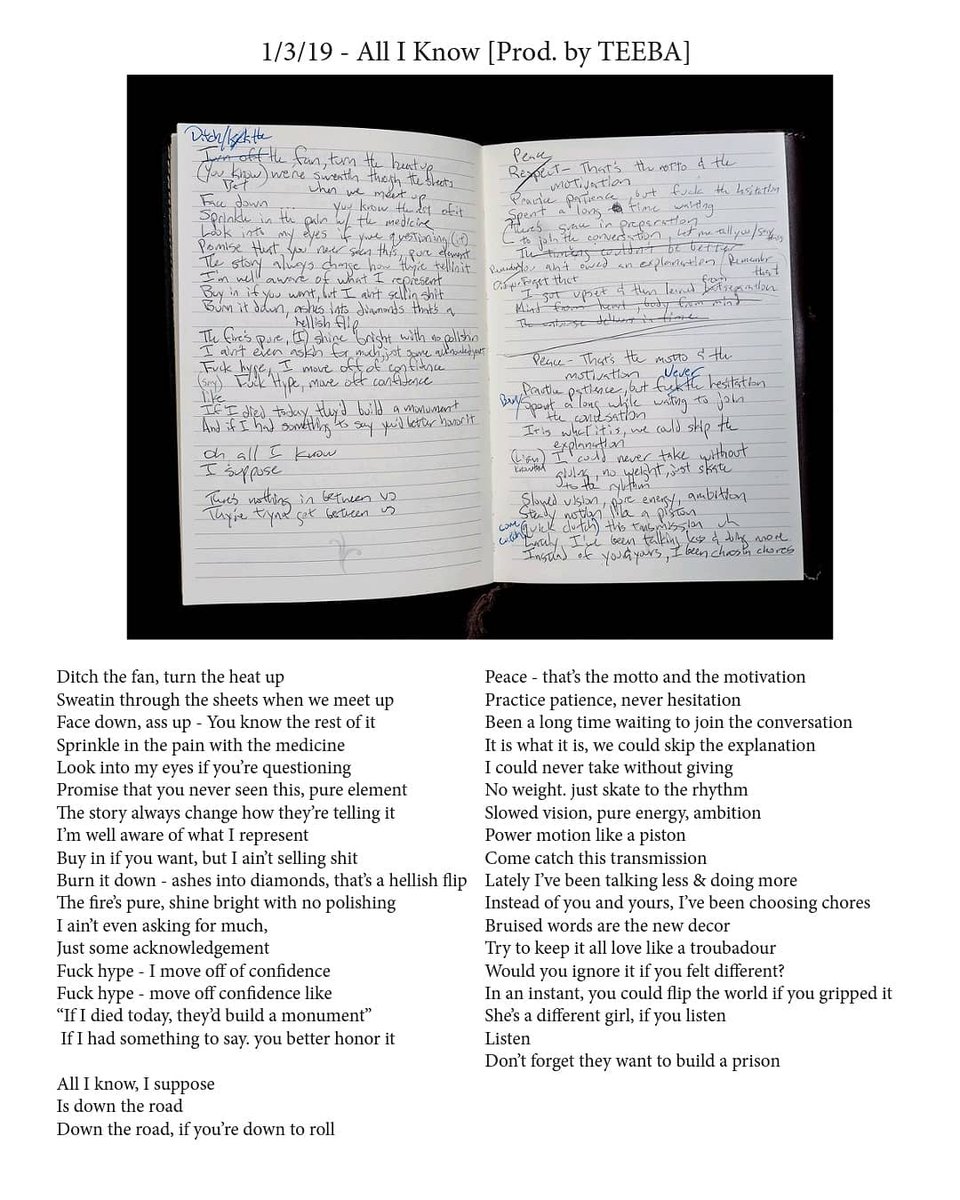 1/3/19 - All I Know [Prod. by TEEBA]
Ditch/
Turn off the fan, turn the heat up
(You know) we're sweatin though the sheets
Bet when we meet up
Face down ... you know the rest of it
Sprinkle in the pain w/ the medicine
Look into my eyes if you're questioning (it)
Promise that you never seen this, pure element
The story always change how they're tellin it
I'm well aware of what I represent
Buy in if you want, but I aint sellin shit
Burn it down, ashes into diamonds that's a
hellish flip
The fire's pure, (I) shine bright with no polishin
I ain't even askin for much, just some acknowledgement
Fuck hype, I move off of confidence
(say) Fuck Hype, move off confidence
like
If I died today they'd build a monument
And if I had something to say you'd better honor it
oh all I know
I suppose
There's nothing in between us
They're tryna get between us
Peace
Respect - That's the motto & the
motivation
Practice patience, but fuck the hesitation
Spent a long time waiting
(There's grace in preparation
to join the conversation, Let me tell you/say
The timing couldn't be better
ain't owed an explanation (Remember
forget that that
I got upset & then learned from
Mind from heart, body from mind
in time
Peace - That's the motto & the
motivation Never
Practice patience, but fuck the hesitation
Been/ Spent a long while waiting to join
the conversation
It is what it is, we could skip the
explanation
I could never take without
giving, no weight, just skate
to the rhythm
Slowed vision, pure energy, ambition
Steady motion like a piston
come catch (quick clutch) this transmission uh
Lately, I've been talking less & doing more
Instead of you & yours, I been choosin chores
Ditch the fan, turn the heat up
Sweatin through the sheets when we meet up
Face down, ass up - You know the rest of it
Sprinkle in the pain with the medicine
Look into my eyes if you’re questioning
Promise that you never seen this, pure element
The story always change how they’re telling it
I’m well aware of what I represent
Buy in if you want, but I ain’t selling shit
Burn it down - ashes into diamonds, that’s a hellish flip
The fire’s pure, shine bright with no polishing
I ain’t even asking for much,
Just some acknowledgement
Fuck hype - I move off of confidence
Fuck hype - move off confidence like
“If I died today, they’d build a monument”
If I had something to say. you better honor it
All I know, I suppose
Is down the road
Down the road, if you’re down to roll
Peace - that’s the motto and the motivation
Practice patience, never hesitation
Been a long time waiting to join the conversation
It is what it is, we could skip the explanation
I could never take without giving
No weight. just skate to the rhythm
Slowed vision, pure energy, ambition
Power motion like a piston
Come catch this transmission
Lately I’ve been talking less & doing more
Instead of you and yours, I’ve been choosing chores
Bruised words are the new decor
Try to keep it all love like a troubadour
Would you ignore it if you felt different?
In an instant, you could flip the world if you gripped it
She’s a different girl, if you listen
Listen
Don’t forget they want to build a prison